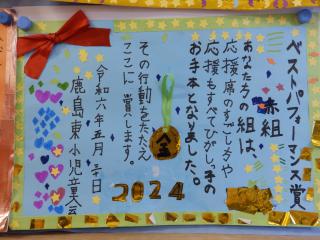 ベストパフォーマンス賞
赤組
あなたたちの組は、
応援席のすごし方や
応援もすべてひがしっ子の
お手本となりました。
その行動をたたえ
ここに賞します。
令和六年五月
鹿島東小児童会
金
2024